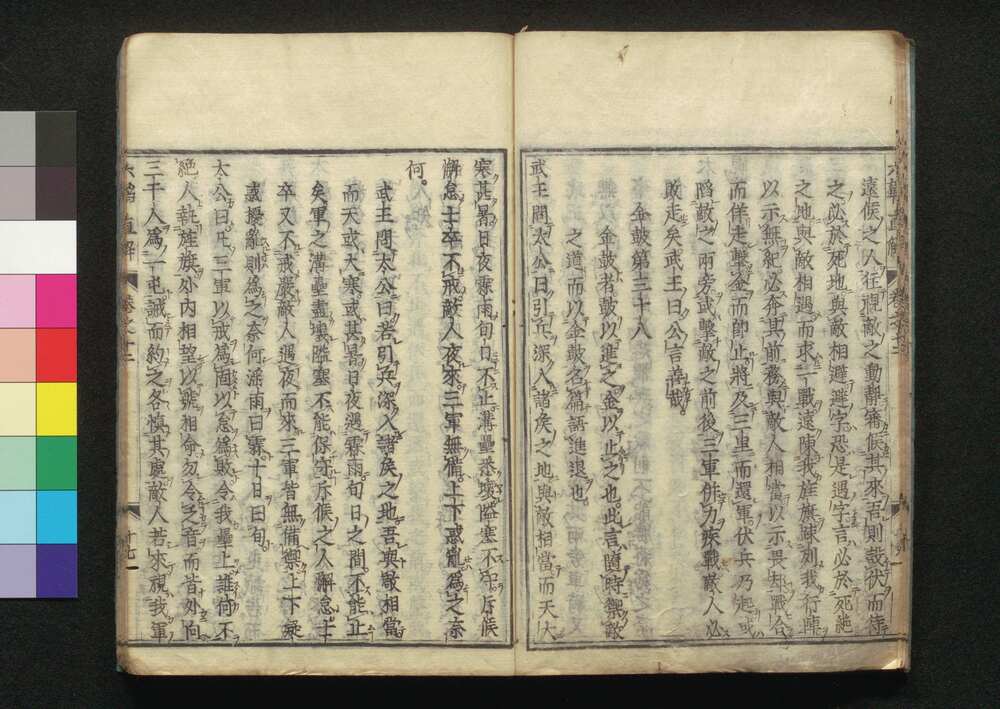 遠候之人往視敵之動靜審候其來否則設伏而待
之必於死地與敵相避避字恐是遇字言必於死絶
之地與敵相遇而求一戰遠陳我旌旗疎列我行陣
以示無紀必奔其前務與敵人相當以示畏却戰合
而佯走擊金而即止將及三里而還軍伏兵乃起或
䧟敵之兩旁或擊敵之前後三軍併力疾戰敵人必
敗走矣武王曰公言善哉
金鼓第三十八
金鼓者鼓以進之金以止之也此言隨時禦敵
之道而以金鼓名篇謂進退也
武王問太公曰引兵深入諸矦之地與敵相當而天大
寒甚暑日夜霖雨旬日不止溝壘悉壞隘塞不守斥候
懈怠士卒不戒敵人夜來三軍無備上下惑亂爲之奈
何
武王問太公曰若引兵深入諸矦之地吾與敵相當
而天或大寒或甚暑日夜遇霖雨旬日之間不能止
矣軍之溝壘盡壞隘塞不能保守斥候之人懈怠士
卒又不戒嚴敵人遇夜而來三軍皆無備禦上下疑
惑擾亂則爲之奈何滛雨曰霖十日曰旬
太公曰凡三軍以戒爲固以怠爲敗令我壘上誰何不
絶人執旌旗外内相望以號相命勿令乏音而皆外向
三千人爲一屯誡而約之各慎其處敵人若來視我軍
六韜直解
卷之十二
十七